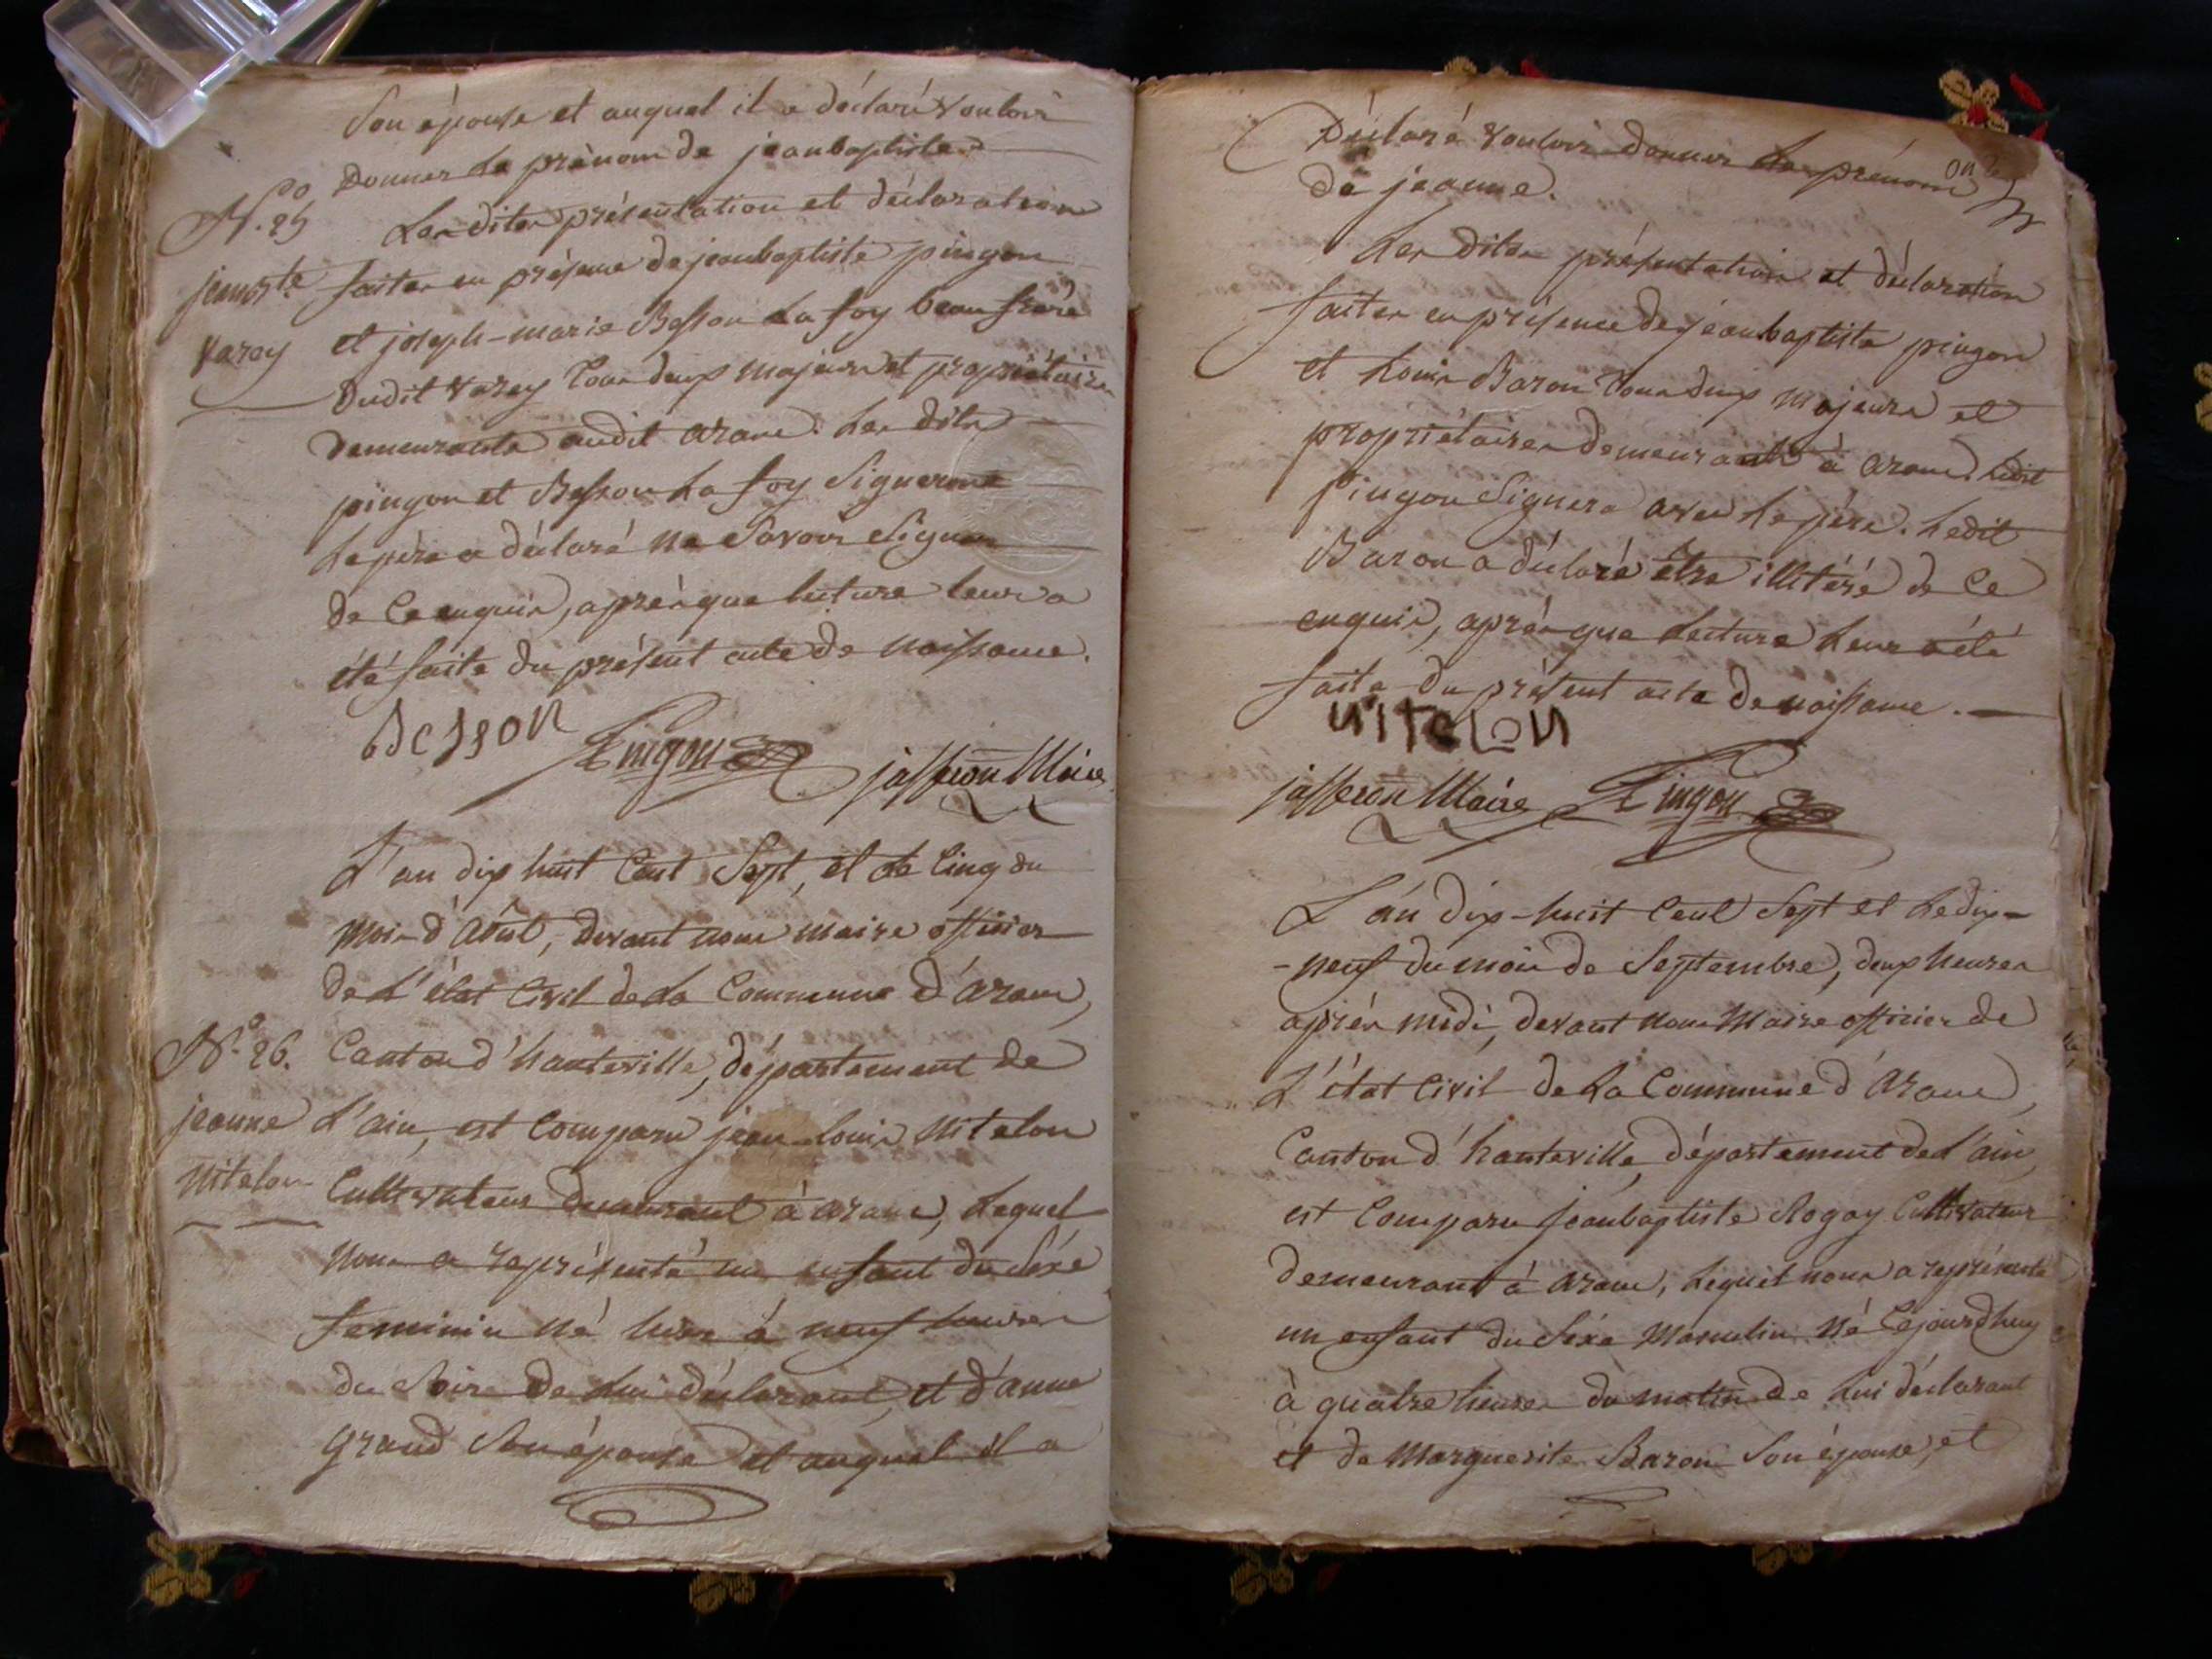 Son épouse et auquel il a déclaré vouloir
donner le prénom de jeanbaptiste.
N.o 25
jeanb.te
Varey
Les dites présentation et déclaration
faites en présence de jeanbaptiste pingon
et joseph-marie Besson La foy beaufrere
dudit varey tous deux majeurs et propriétaires
demeurants audit arane. Les dits
pingon et Besson La foy Signeront
Le père a déclaré ne Savoir Signer
de Ce enquis, après que lecture leur a
été faite du présent acte de naissance.
Besson Pingon jasseron Maire
L'an dix huit Cent Sept, et le Cinq du
mois d'Août, devant nous maire officier
de L'état Civil de La Commune d'arane,
N.o 26.
jeanne
Nitelon
Canton d'hauteville, département de
L'ain, est Comparu jean-louis Nitelon
Cultivateur demeurant à arane, Lequel
nous a représenté un enfant du Séxe
feminin né hier à neuf heures
du Soire de Lui déclarant, et d'anne
grand Son épouse et auquel il a
on
Déclaré vouloir donner Le prénom
de jeanne.
Les dites présentation et déclaration
faites en présence de jeanbaptiste pingon
et Louis Baron tous deux majeurs et
propriétaires demeurants à arane. Ledit
Pingon Signera avec Le père. Ledit
Baron a déclaré être illitéré de Ce
enquis, après que Lecture Leur a été
faite du présent acte de naissance.
Nitelon
jasseron Maire Pingon
L'an dix-huit Cent Sept et Le dix-
-neuf du mois de Septembre, deux heures
après midi, devant nous Maire officier de
L'état Civil de La Commune d'Arane,
Canton d'hauteville, département de L'ain,
est Comparu Jeanbaptiste Rogay Cultivateur
demeurant à arane, Lequel nous a représenté
un enfant du Séxe Masculin né Cejourdhuy
à quatre heures du matin de Lui déclarant
et de Marguerite Baron Son épouse, et